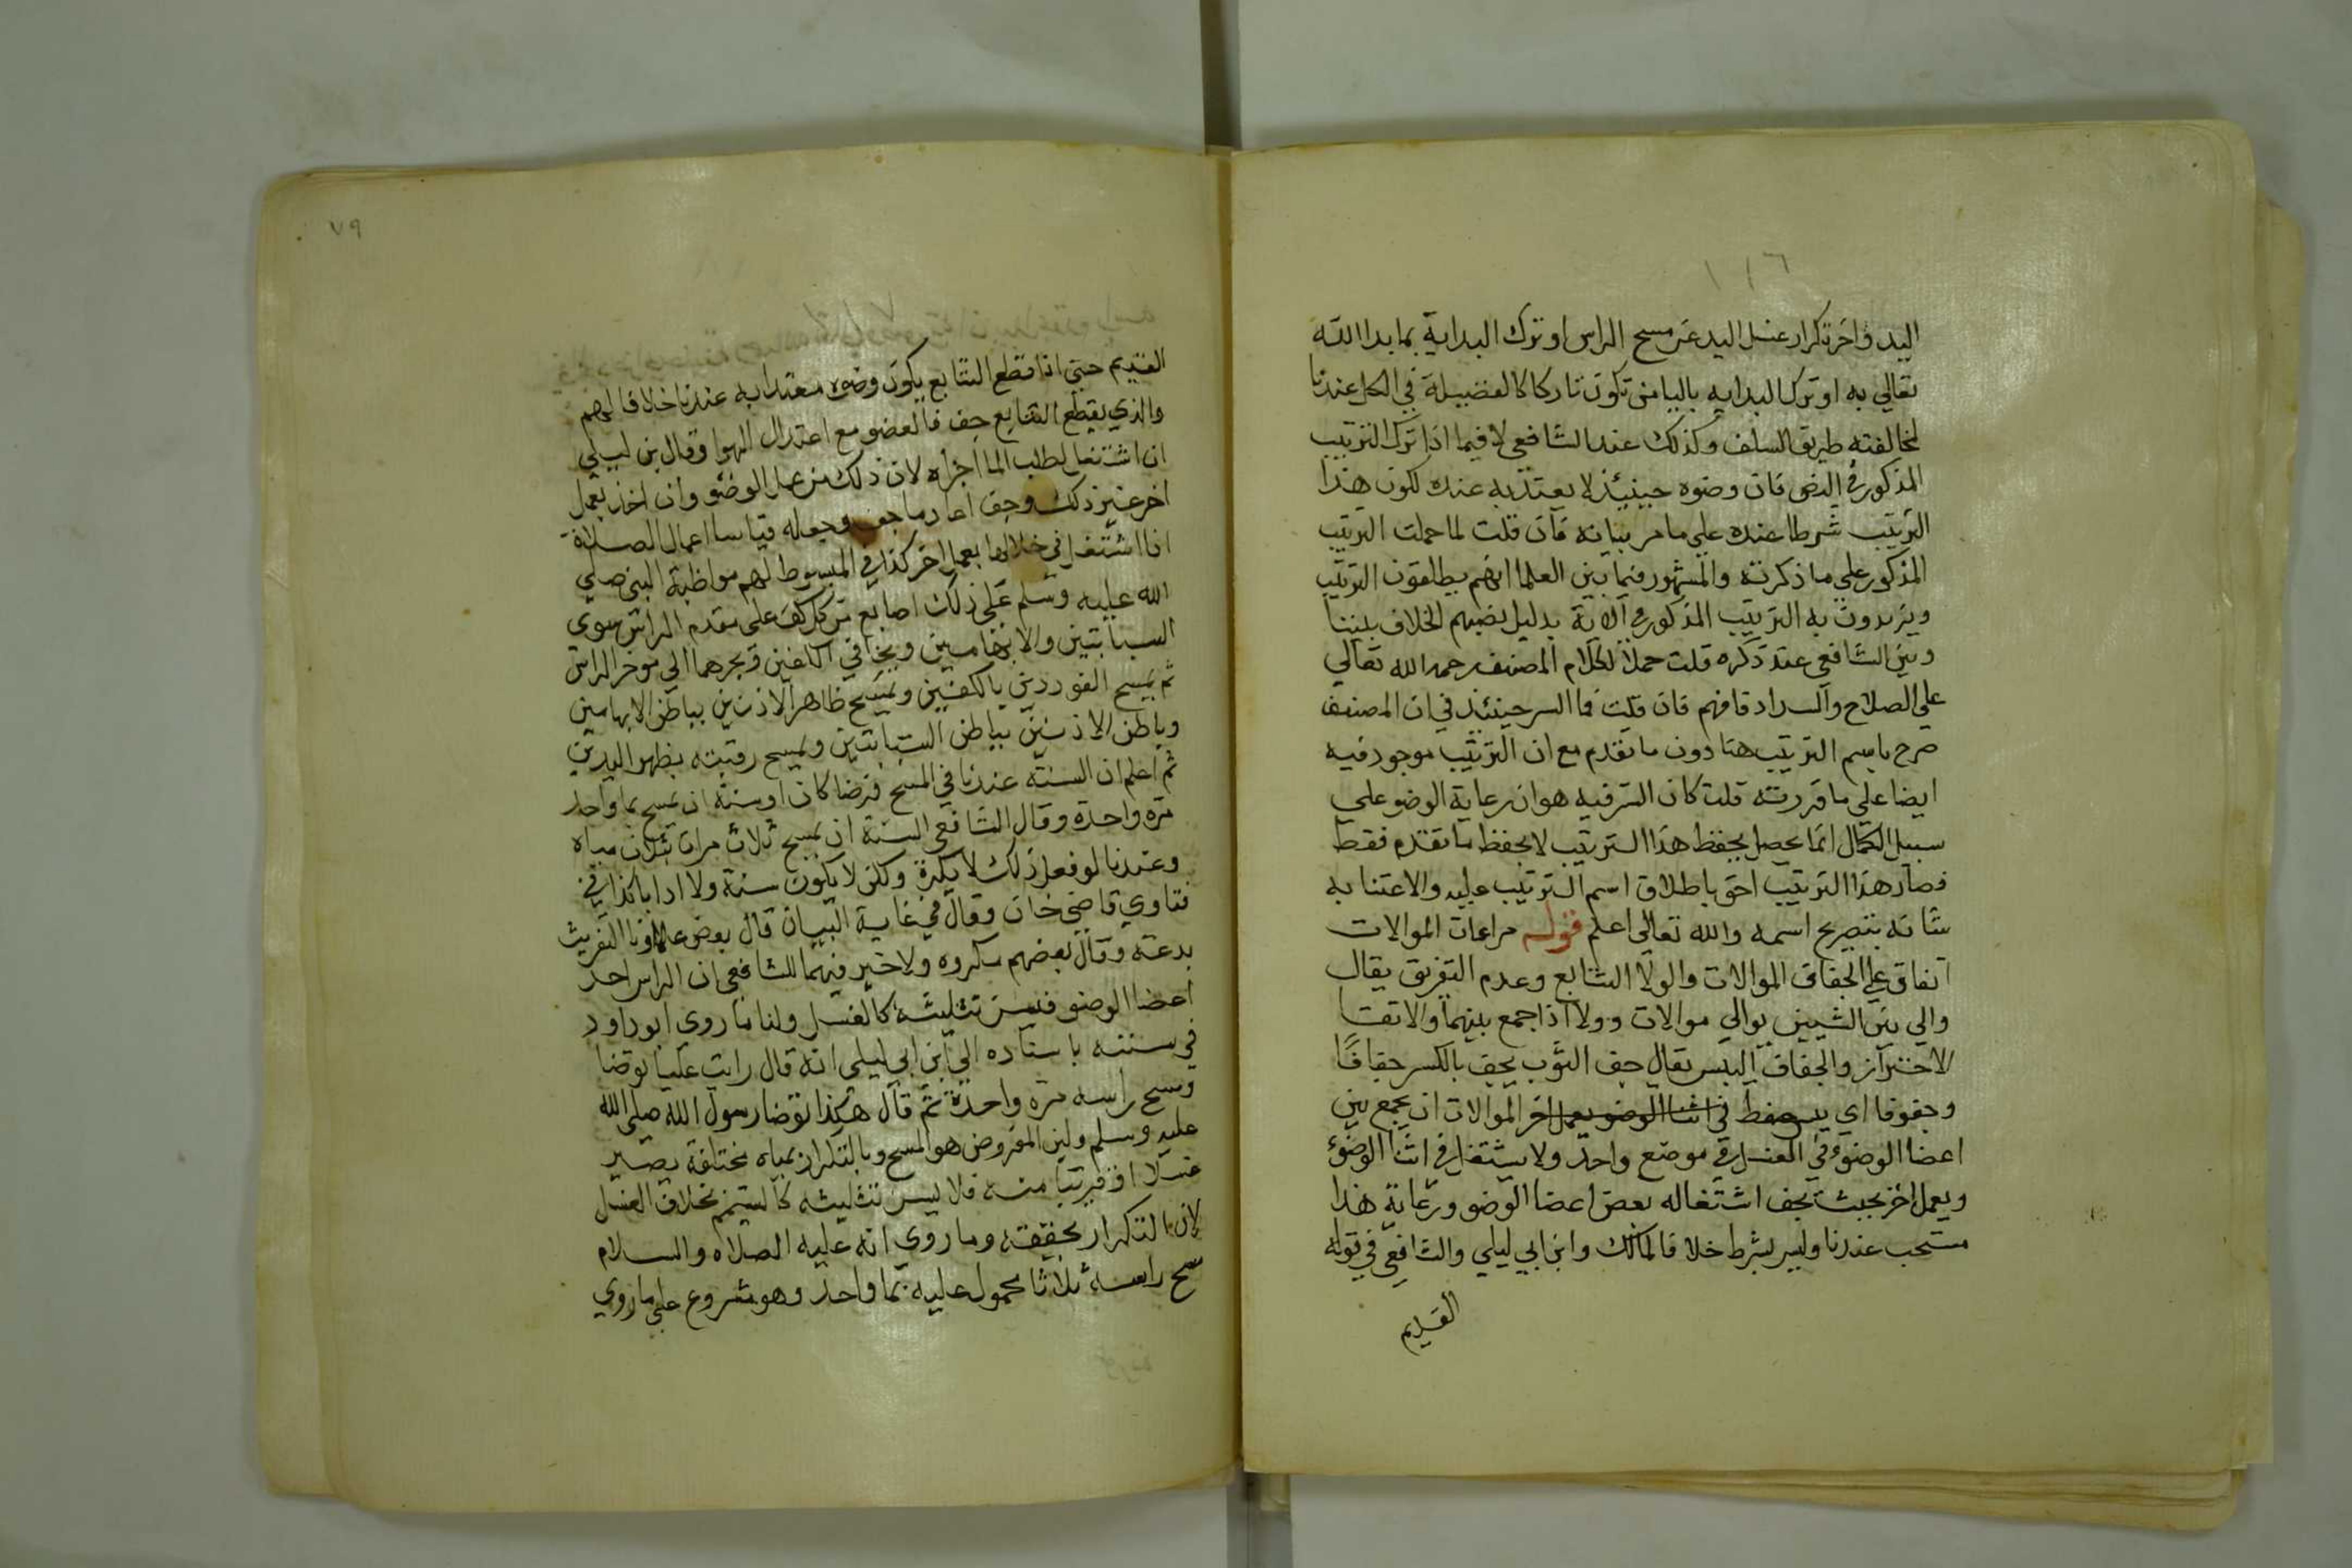 ١١٦
اليد واخر تكرار غسل اليد عن مسح الراس او ترك البداية بما بدا الله
تعالي به او ترك البدايه باليا من تكون تاركا كالفضيلة في الكل عندنا
لمخالفته طريق السلف وكذلك عند الشافعي لا فيما اذا ترك الترتيب
المذكور في النص فان وضوه حينيئذ لا يعتد به عنده لكون هذا
الترتيب شرطا عنده علي ما مر بيانه فان قلت لما حملت الترتيب
المذكور علي ما ذكرته والمشهور فيما بين العلما انهم يطلقون الترتيب
ويريدون به الترتيب المذكور في الاية بدليل نصبهم الخلاف بيننا
وبين الشافعي عند ذكره قلت حملا لكلام المصنف رحمه الله تعالي
علي الصلاح والسداد فافهم فان قلت فما السر حينئذ في ان المصنف
صرح باسم الترتيب هنا دون ما تقدم مع ان الترتيب موجود فيه
ايضا علي ما قررته قلت كان السر فيه هو ان رعاية الوضو علي
سبيل الكمال انما يحصل بحفظ هذا الترتيب لا بحفظ ما تقدم فقط
فصار هذا الترتيب احق باطلاق اسم الترتيب عليه والاعتنا به
شانه بتصريح اسمه والله تعالي اعلم قوله مراعات الموالات
اتفاق علي الجفاف الموالات والولا التتابع وعدم التفريق يقال
والي بين الشيين يوالي موالات وولا اذا جمع بينهما والاتقا
الاحتراز والجفاف اليبس يقال جف الثوب يجف بالكسر جفافا
وجفوفا اي يحفظ في اثنا الوضو بعمل اخر الموالات ان يجمع بين
اعضا الوضوء في الغسل في موضع واحد ولا يشتغل في اثنا الوضوء
وبعمل اخر بحيث يجف اشتغاله بعض اعضا الوضو ورعاية هذا
مستحب عندنا وليس بشرط خلافا لمالك وابن ابي ليلي والشافعي في قوله
القديم
٧٩
القديم حتي اذا قطع التتابع يكون وضوه معتدا به عندنا خلافا لهم
والذي يقطع التتابع جف فالعضو مع اعتدال الهوا وقال بن ليلي
ان اشتغل لطلب الما اجزاه لان ذلك من عمل الوضو وان اخذ بعمل
اخر غير ذلك وجف اعاد ما جف وجعله قياسا اعمال الصلاة
اذا اشتغل في خلالها بعمل اخر كذا في المبسوط لهم مواظبة النبي صلي
الله عليه وسلم علي ذلك اصابع من كل كف علي مقدم الراس سوي
السبابتين والابهامين ويجافي الكفين ويجرهما الي موخر الراس
ثم يمسح الفوردين بالكفين ويمسح ظاهر الاذنين بباطن الابهامين
وباطن الاذنين بباطن السبابتين ويمسح رقبته بظهر اليدين
ثم اعلم ان السنة عندنا في المسح فرضا كان او سنة ان يمسح بما واحد
مرة واحدة وقال الشافعي السنة ان يمسح ثلاث مرات بثلاث مياه
وعندنا لو فعل ذلك لا يكره ولكن لا يكون سنة ولا ادابا كذا في
فتاوي قاضي خان وقال في غاية البيان قال بعض علماونا التقريث
بدعة وقال بعضهم مكروه ولا خير فيهما للشافعي ان الراس احد
اعضا الوضو فيسن تثليثه كالغسل ولنا ما روي ابو داود
في سننه باسناده الي ابن ابي ليلي انه قال رايت عليا توضا
ومسح راسه مرة واحدة ثم قال هكذا توضا رسول الله صلي الله
عليه وسلم ولين المفروض هو المسح وبالتكرار بمياه مختلفة يصير
غسلا او قريبا منه فلا يسن تثليثه كالتيمم بخلاف الغسل
لان بالتكرار يحققه وما روي انه عليه الصلاه والسلام
مسح راسه ثلاثا محمول عليه بما واحد وهو مشروع علي ما روي